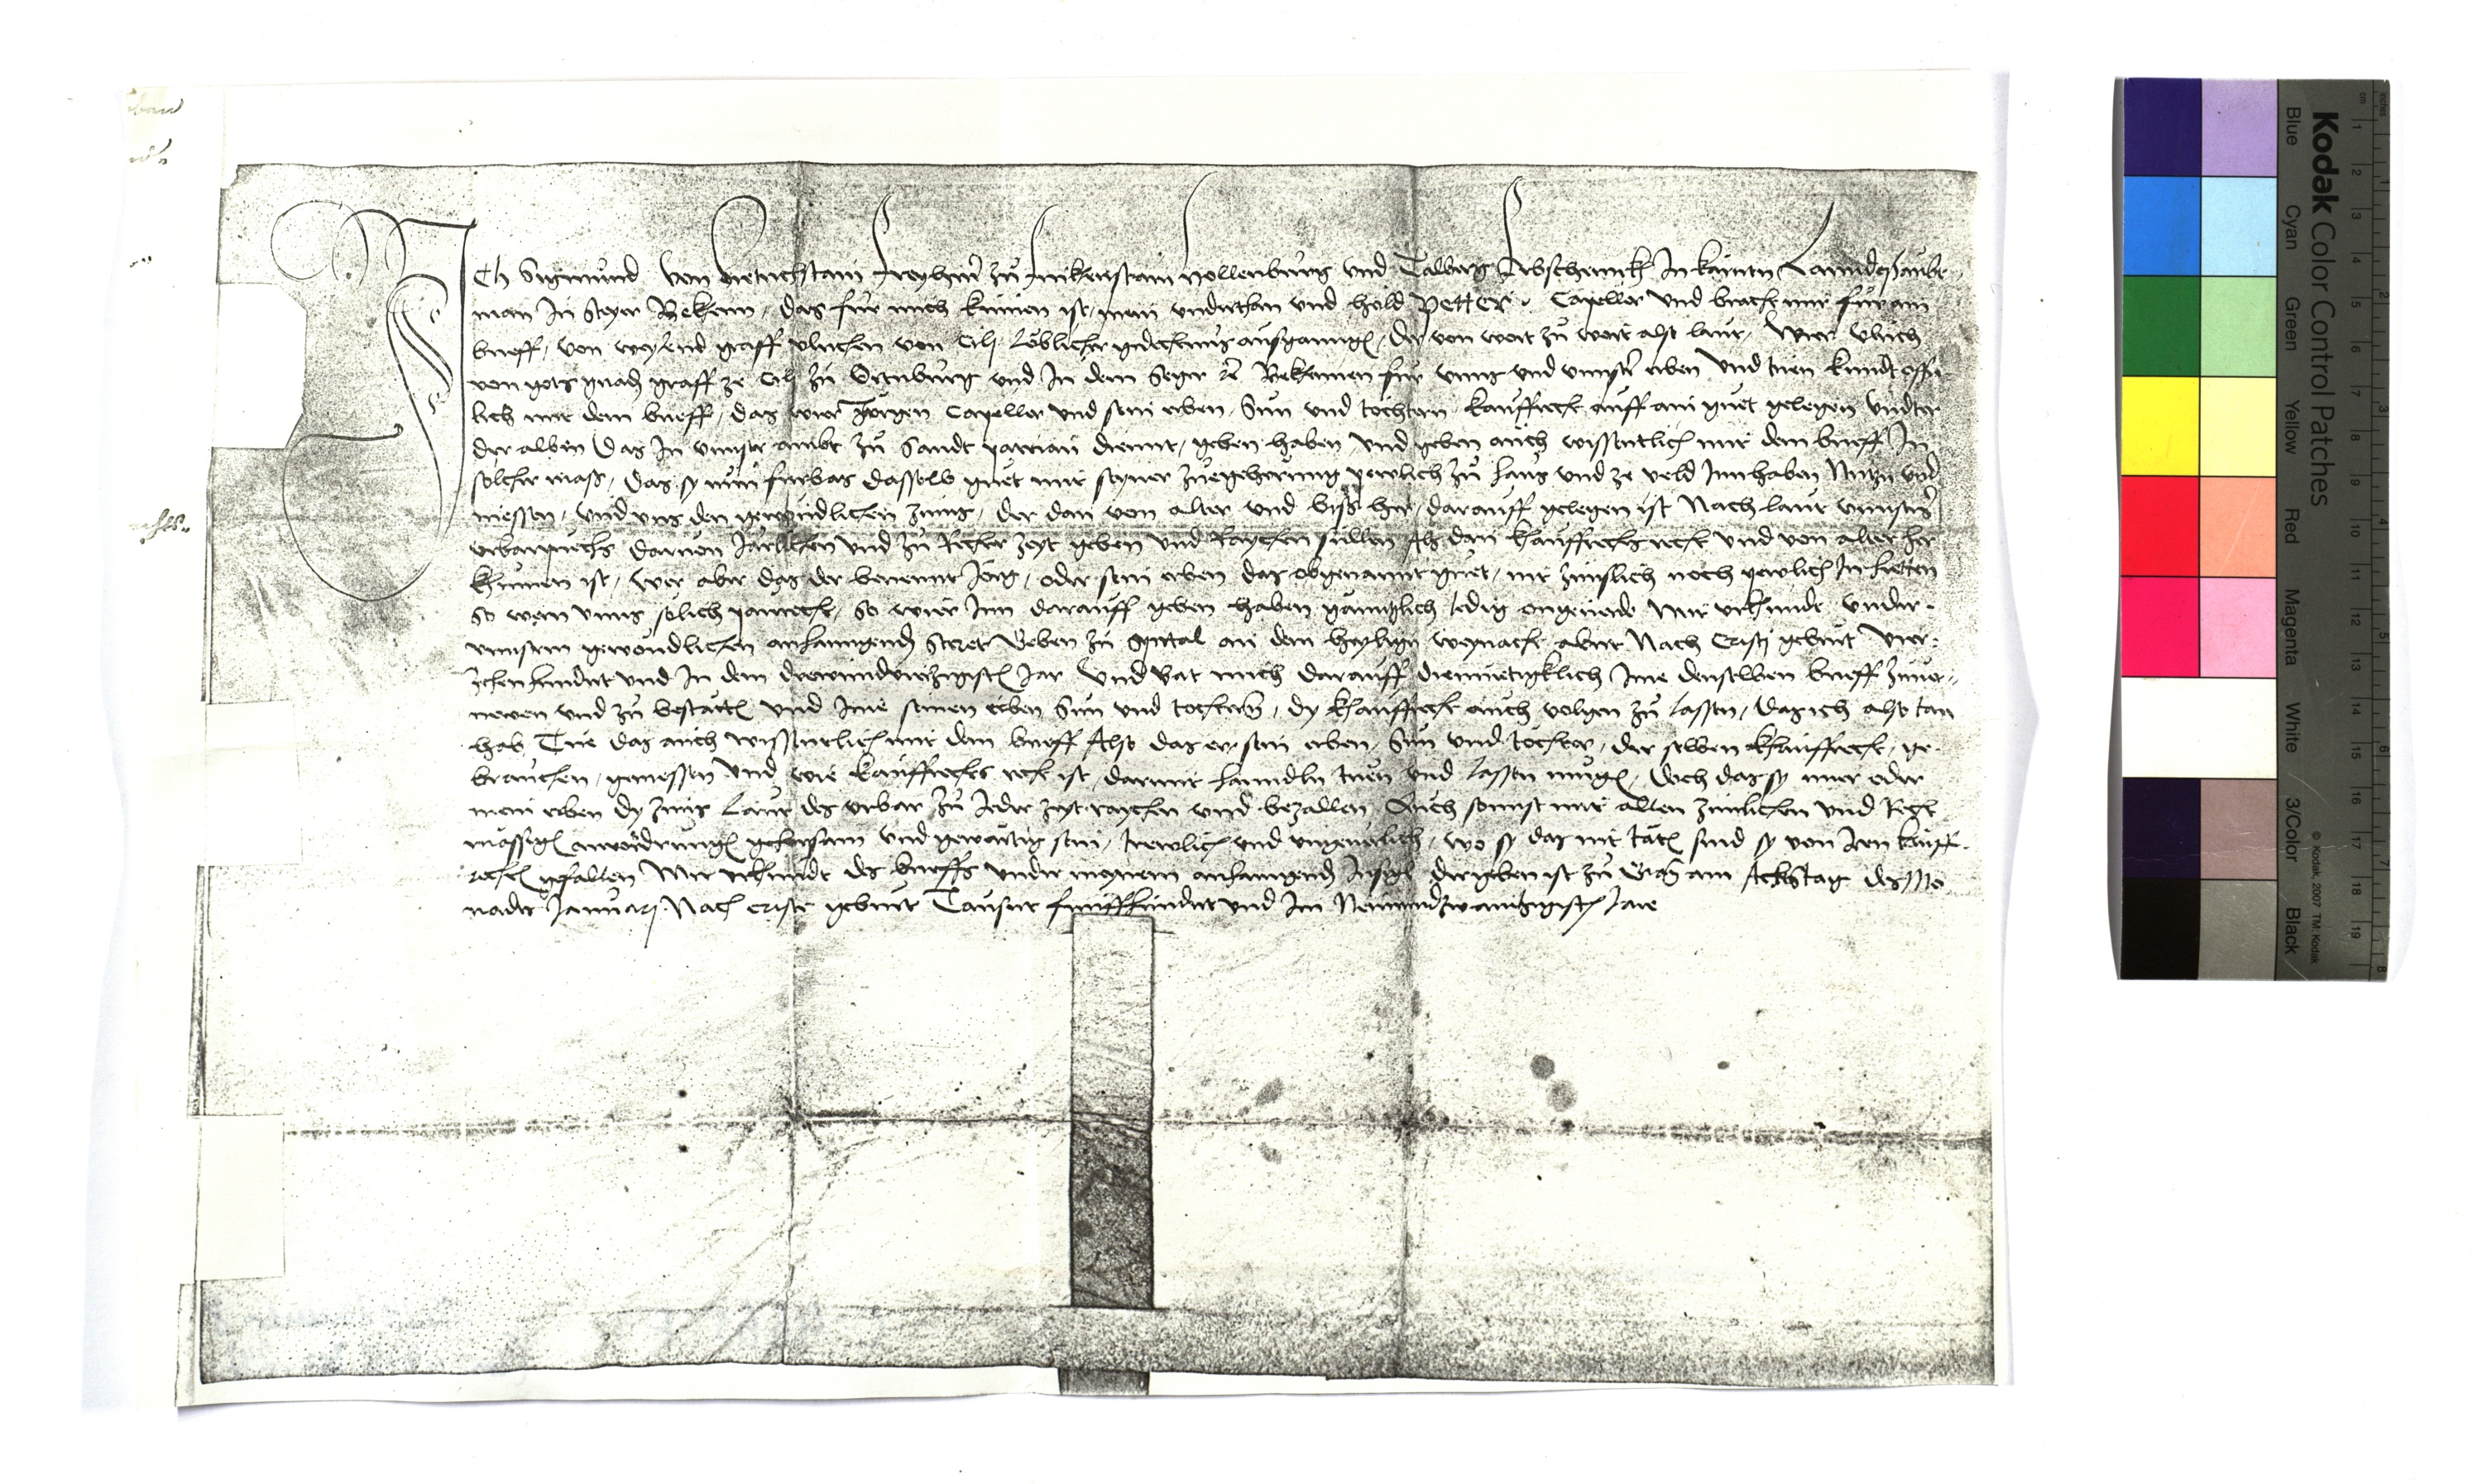 Ich Sigmund von Dietrichstain Freyherr zů Finkenstain Hollenburg und Talberg Erbschennkh In kärntn Lanndeßhaubt-
man In Steyr Bekenn, das für mich kumen ist, mein underthan und hold Petter Capeller und bracht mir für ain
brieff, von weylend graff Ulrichen von Cili löblicher gedechtnus ausganngen, der von wort zů wort also laut, Wier Ulrich
von gots gnaden graff ze Cili zů Ortnburg und In dem Seger etc Bekennen für unns und unnser erben und tuen kundt offn-
lich mit dem brieff, das wier Jörgen Capeller und sein erben, Sun und töchtern kauffrecht auff ain guet gelegen undter
der alben Das In unnser ambt zů Sandt patrian diennt, geben haben und geben auch wissentlich mit dem brieff In
solcher mass, das sy nun furbas dasselb guet mit seyner zuegehorung pewlich zů haus und ze veld Innhaben Nutzn und
niessen, und uns den gewöndlichen zinns, der dan von alter und biss her, darauff gelegen ist Nach laut unnsers
urbarpuechs darvon Järlichen und zů Rechter zeyt geben und Raychen süllen Als dan kauffrechts recht und von alter her
khumen ist, Wer aber das der benennt Jörg, oder sein erben das obgenannt guet, nit zinslich noch pewlich In hietten
so wern unns solich paurecht, so wier Inn darauff geben haben gänntzlich ledig ongeverde Mit urkhundt under-
unnserm gewöndlichen anhanngenden Secret Geben zů Spital an dem heyligen weynacht abent Nach Cristi geburt vier-
zehenhundert und In dem drewundvierzigisten Jar Und bat mich darauff diemuetigklich Ime denselben brieff zuver-
newen und zů bestätten und Ime seinen erben Sun und tochtern, dy khauffrecht auch volgen zů lassen, das ich also tan
hab Tue das auch wissentlich mit dem brieff Also das er, sein erben, Sun und töchter, der selben khauffrecht, ge-
brauchen, geniessen und wie kauffrechts recht ist, darmit hanndln tuen und lassen mugen, doch das sy mier oder
mein erben dy zinns laut des urbar zů Jeder zeyt raychen und bezallen, Auch sonnst mit allen zimlichen und Recht
mässigen anvordrungen gehorsam und gewärtig sein, trewlich und ungeverlich, wo sy das nit täten sind sy von Iren kauff-
rechten gefallen Mit urkhundt des brieffs under meynem anhanngenden Insigl der geben ist zů Grätz am Achtstag des Mo-
nadts Januarj Nach cristi geburt Tausent funffhundert und Im Neunundzwaintzigisten Jare
Kodak Color Control Patches
Blue Cyan Green Yellow Red Magenta White 3/Color Black
© Kodak, 2007 TM: Kodak
cm 1 2 3 4 5 6 7 8 9 10 11 12 13 14 15 16 17 18 19
inches 1 2 3 4 5 6 7 8